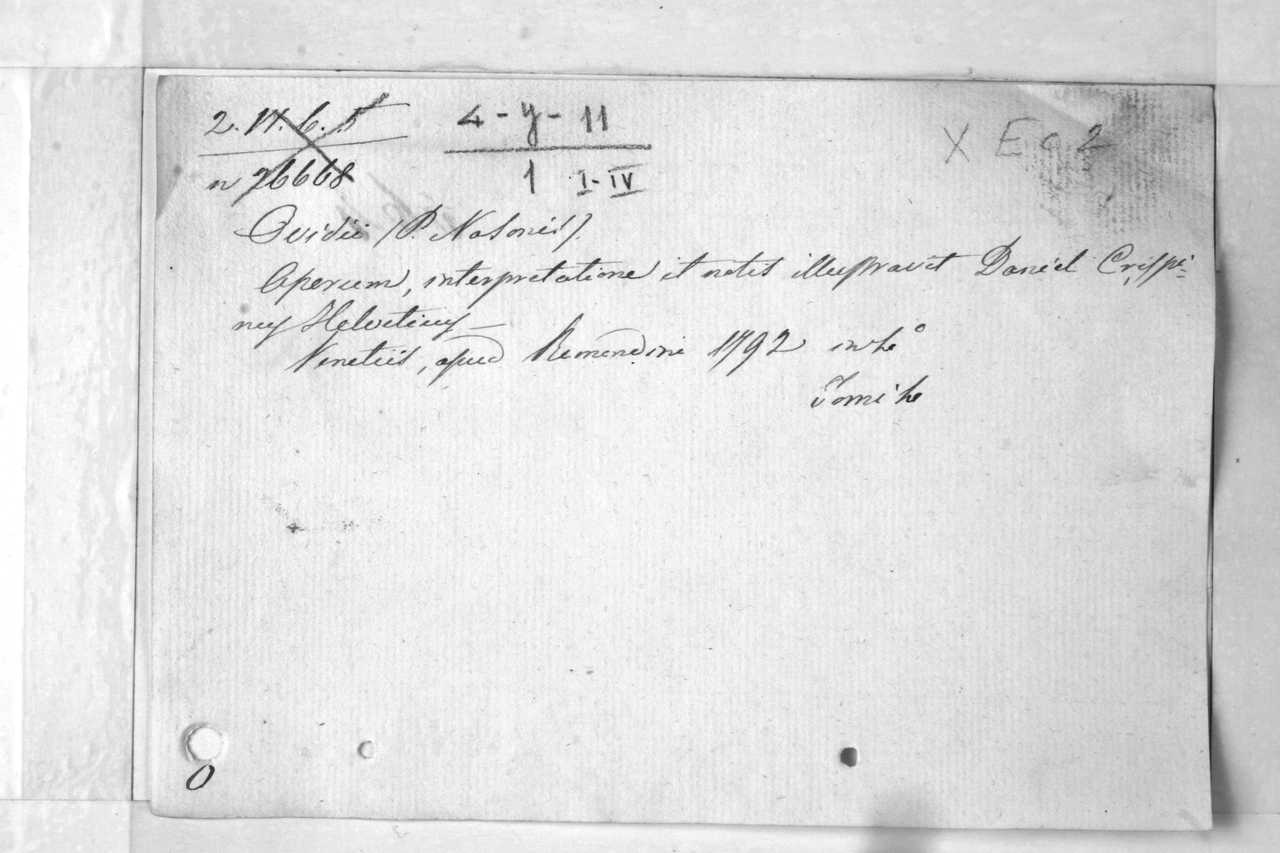 4 - y - 11
1 I-IV
X E c 2
n 26668
Ovidii (P. Nasonis).
Operum, interpretatione et notis illustravit Daniel Crispi=
nus Helvetius
Venetiis, apud Remondini 1792 in 4°
Tomi 4
O